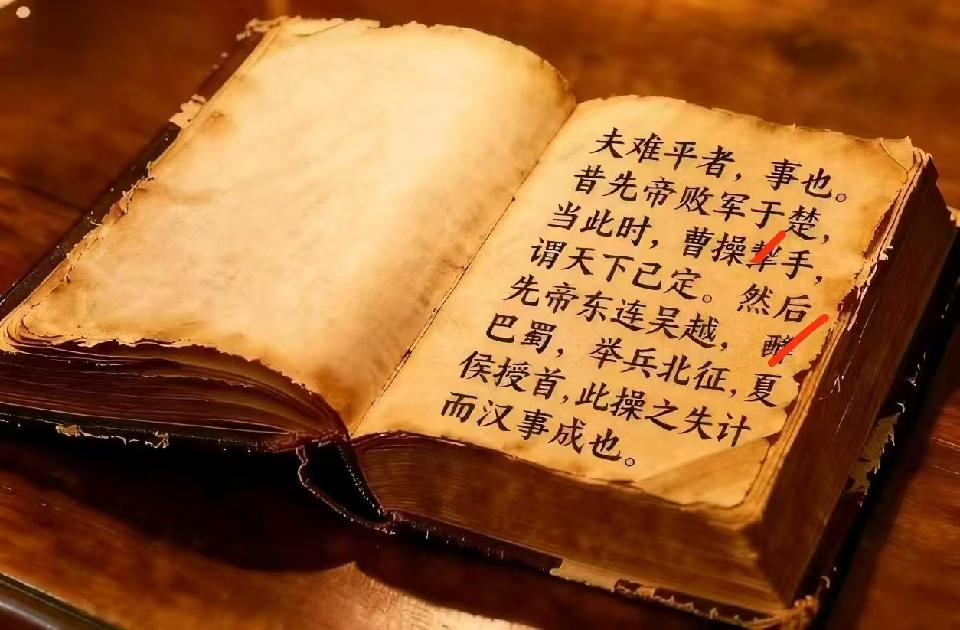 夫难平者，事也。
昔先帝败军于楚，
当此时，曹操手，
谓天下已定。然后
先帝东连吴越，
巴蜀，举兵北征，夏
侯授首，此操之失计
而汉事成也。